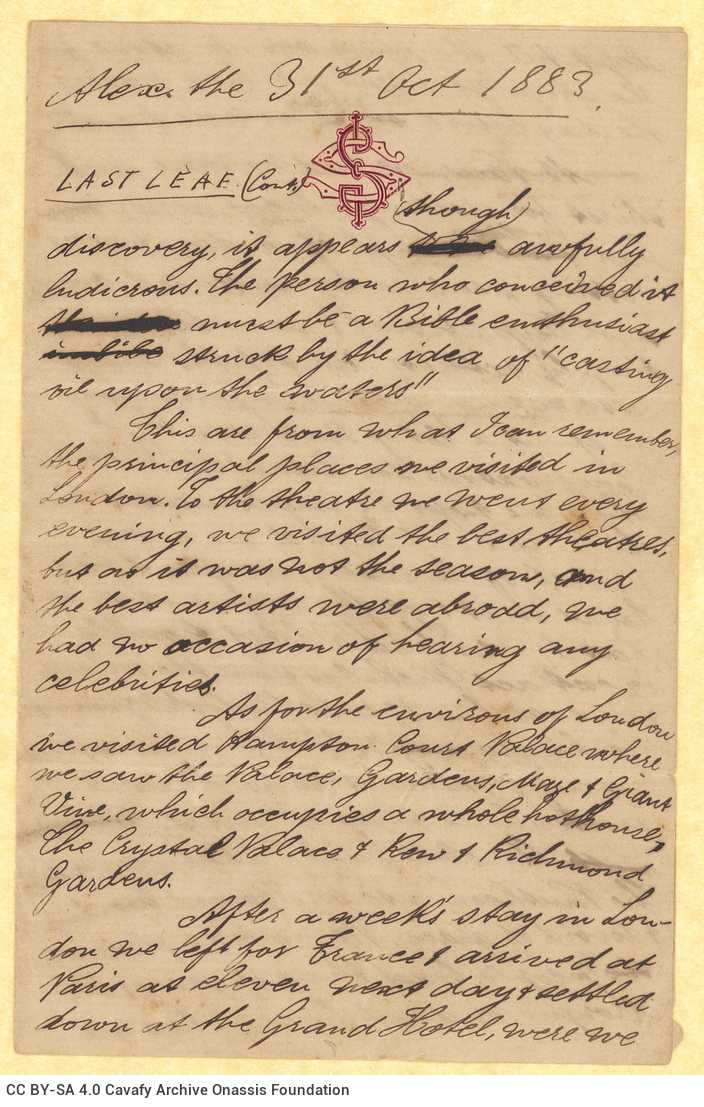 Alex. the 31st Oct 1883.
LAST LEAF (Cont.)
(though)
discovery, it appears awfully
ludicrous. The person who conceived it
must be a Bible enthusiast
struck by the idea of "casting
oil upon the waters"
This are from what I can remember,
the principal places we visited in
London. To the theatre we went every
evening, we visited the best theatres,
but as it was not the season, and
the best artists were abroad, we
had no occasion of hearing any
celebrities.
As for the environs of London
we visited Hampton Court Palace where
we saw the Palace, Gardens, Maze & Giant
Vine, which occupies a whole hothouse,
The Crystal Palace & Kew & Richmond
Gardens.
After a week's stay in Lon-
don we left for France & arrived at
Paris at eleven next day & settled
down at the Grand Hotel, were we
CC BY-SA 4.0 Cavafy Archive Onassis Foundation